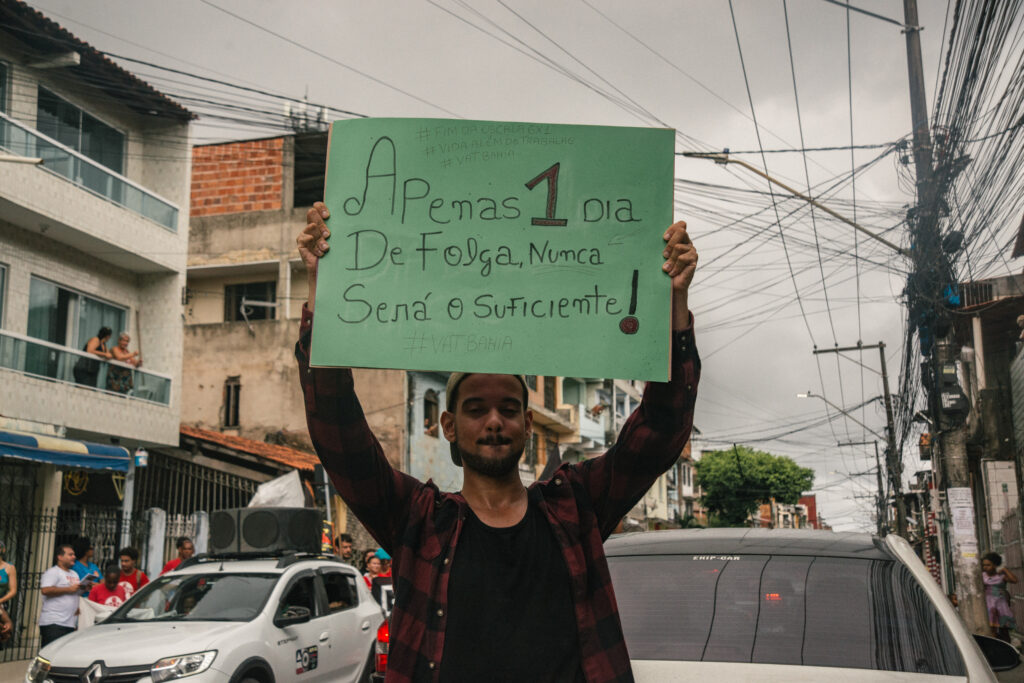 #FIM DA ESCALA 6X1
#VIDA ALÉM DO TRABALHO
#VAT BAHIA
APenas 1 DIA
De Folga, Nunca
Será o Suficiente!
#VAT BAHIA
EHIP-CAR